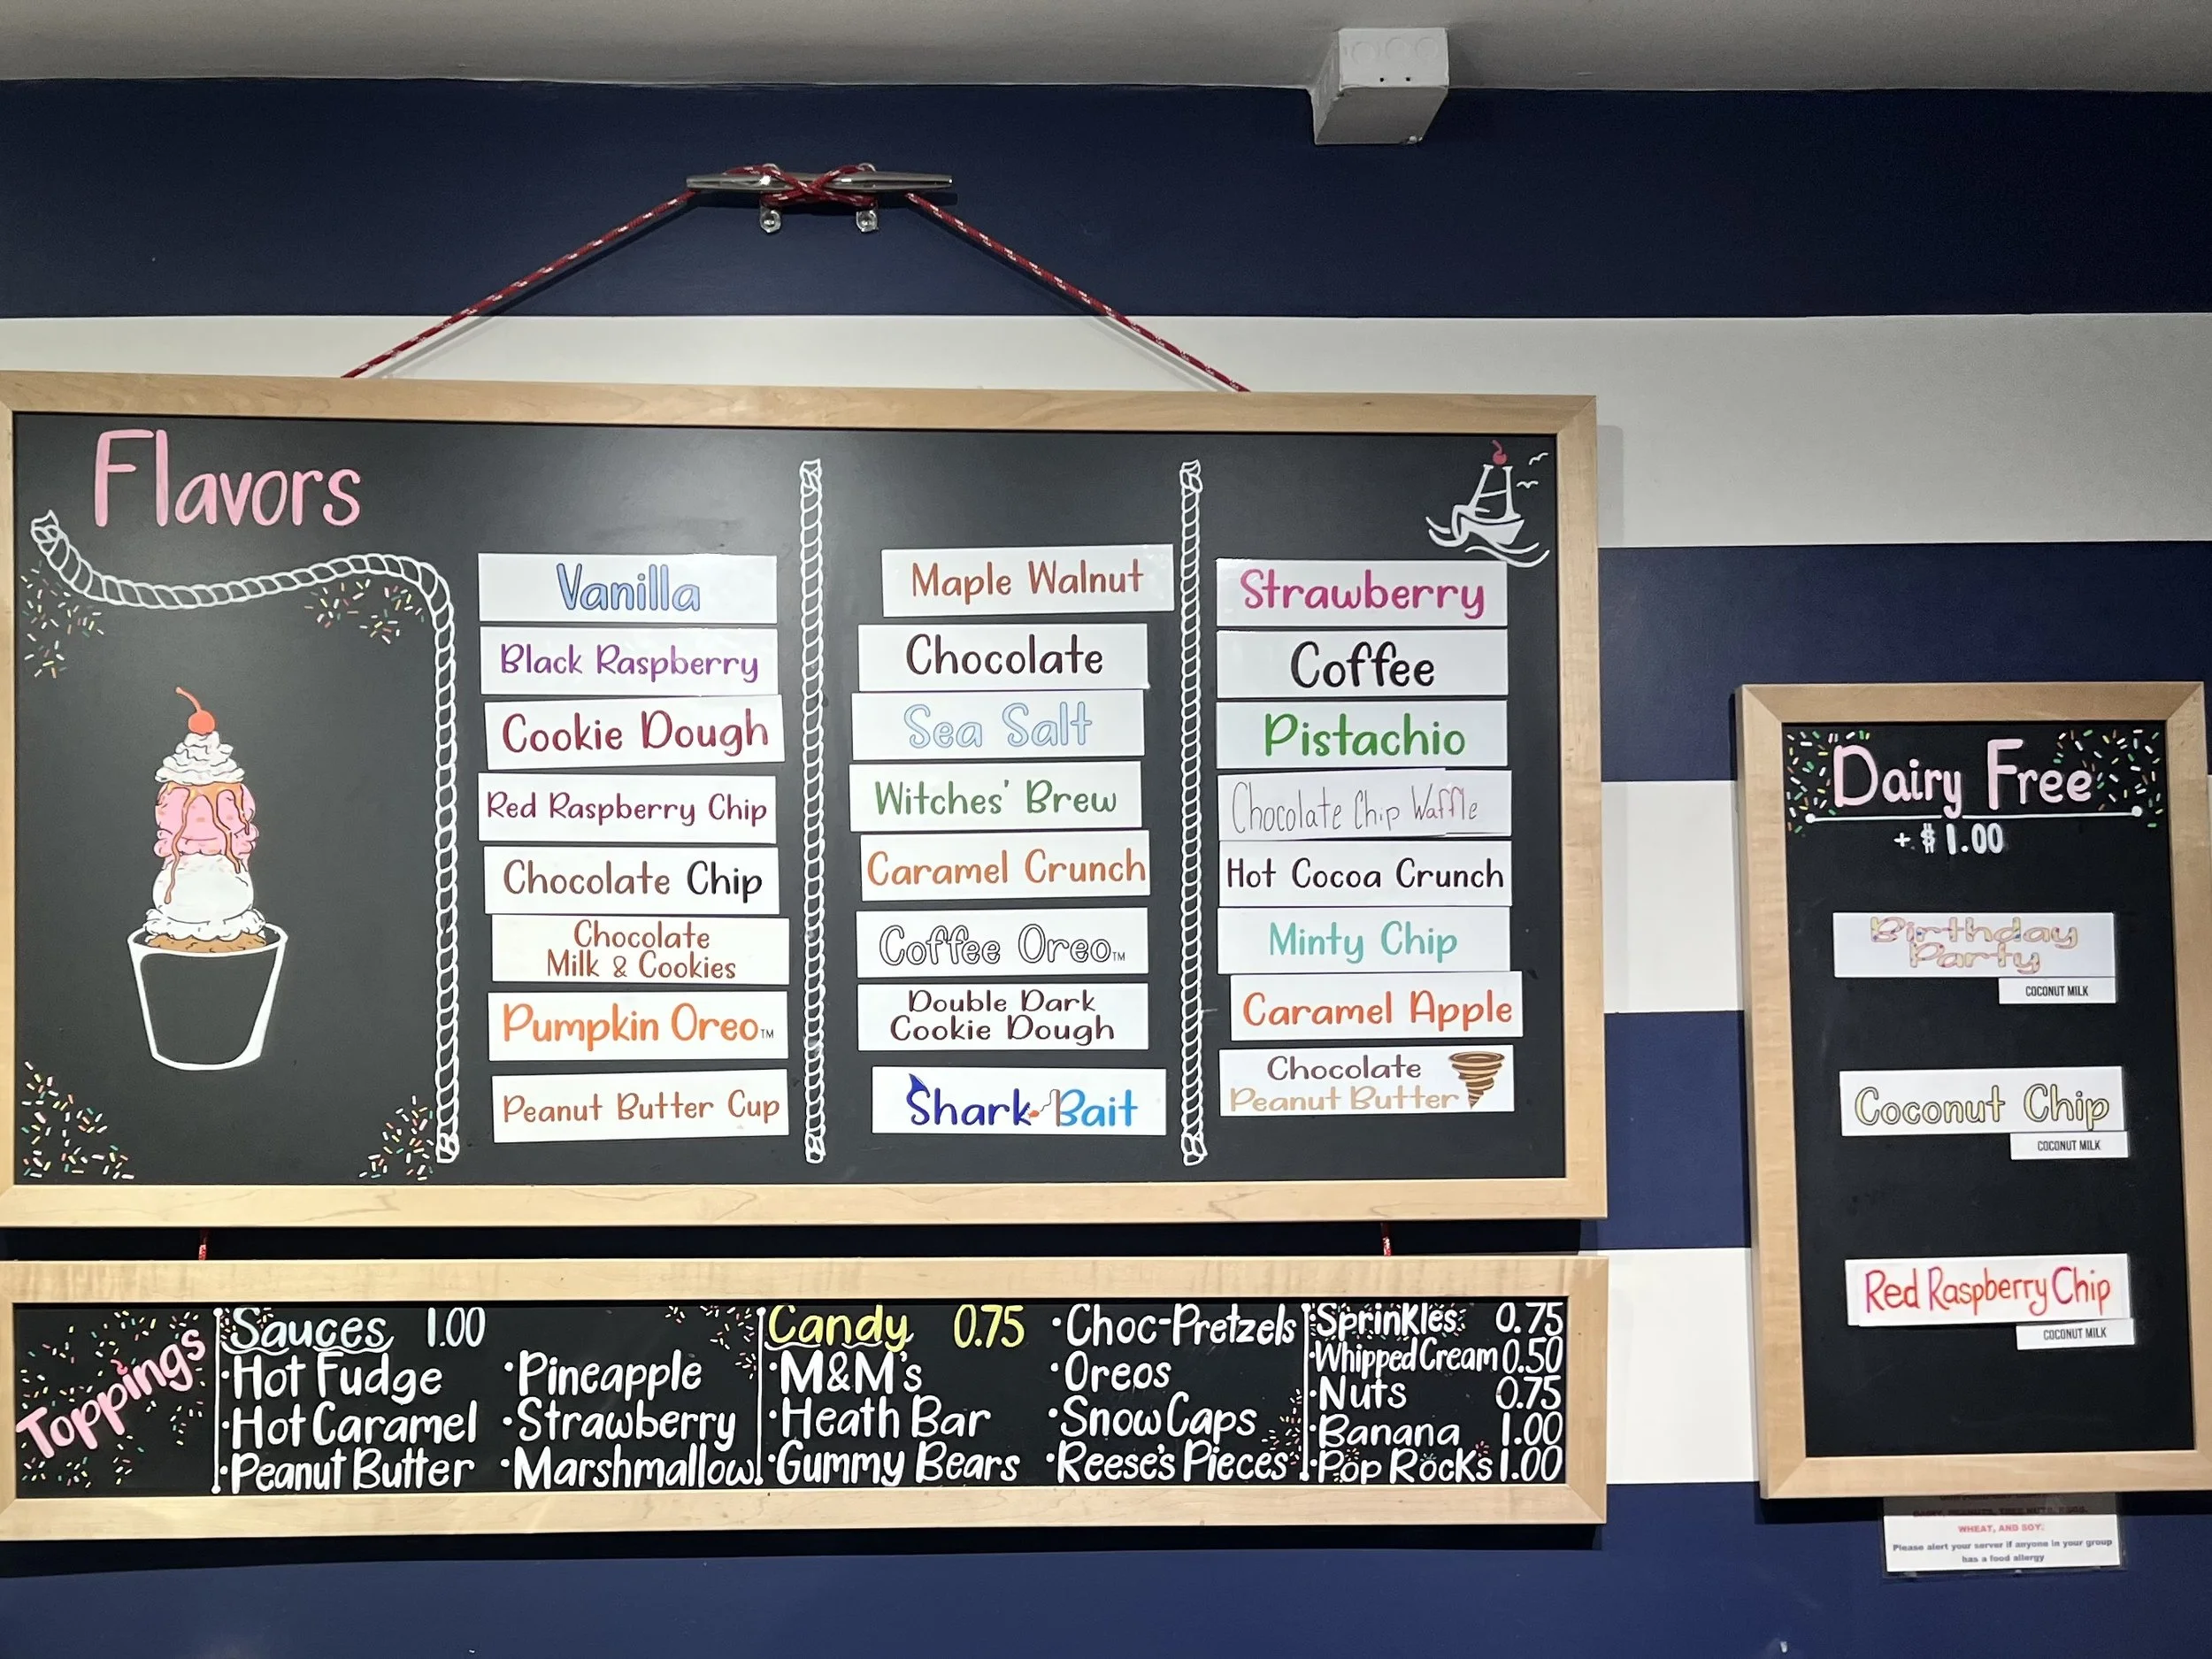 Flavors
Vanilla
Black Raspberry
Cookie Dough
Red Raspberry Chip
Chocolate Chip
Chocolate
Milk & Cookies
Pumpkin Oreo™
Peanut Butter Cup
Maple Walnut
Chocolate
Sea Salt
Witches' Brew
Caramel Crunch
Coffee Oreo™
Double Dark
Cookie Dough
Shark Bait
Strawberry
Coffee
Pistachio
Chocolate Chip Waffle
Hot Cocoa Crunch
Minty Chip
Caramel Apple
Chocolate
Peanut Butter
Toppings
Sauces 1.00
·Hot Fudge
·Hot Caramel
·Peanut Butter
·Pineapple
·Strawberry
·Marshmallow
Candy 0.75
·M&M's
·Heath Bar
·Gummy Bears
·Choc-Pretzels
·Oreos
·Snow Caps
·Reese's Pieces
·Sprinkles 0.75
·Whipped Cream 0.50
·Nuts 0.75
·Banana 1.00
·Pop Rocks 1.00
Dairy Free
+ $1.00
Birthday
Party
COCONUT MILK
Coconut Chip
COCONUT MILK
Red Raspberry Chip
COCONUT MILK
WHEAT, AND SOY.
Please alert your server if anyone in your group
has a food allergy